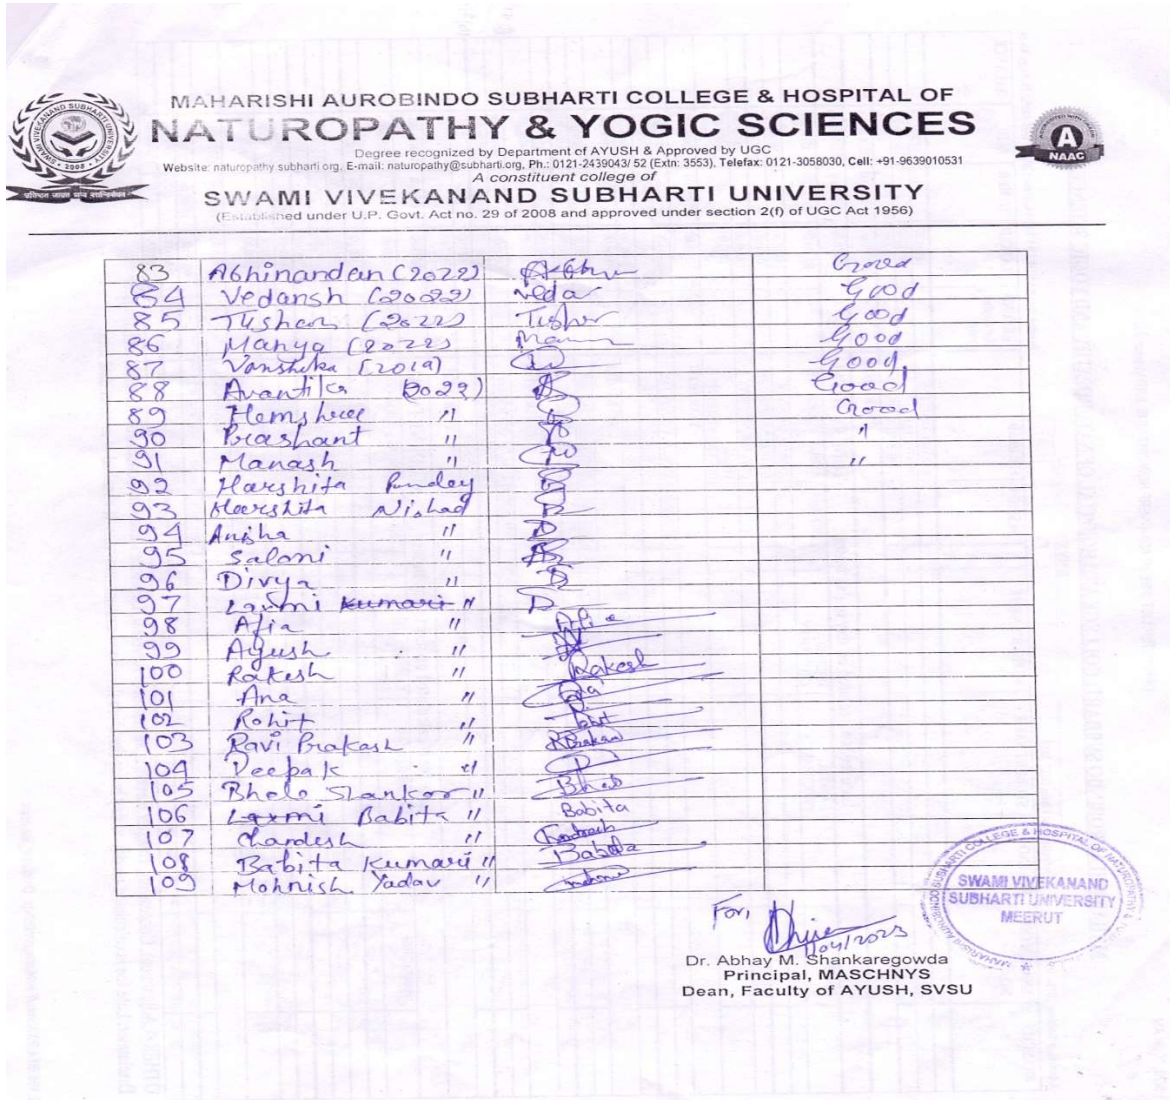 MAHARISHI AUROBINDO SUBHARTI COLLEGE & HOSPITAL OF
NATUROPATHY & YOGIC SCIENCES
Degree recognized by Department of AYUSH & Approved by UGC
Website: naturopathy.subharti.org, E-mail: naturopathy@subharti.org, Ph.: 0121-2439043/ 52 (Extn: 3553), Telefax: 0121-3058030, Cell: +91-9639010531
A constituent college of
SWAMI VIVEKANAND SUBHARTI UNIVERSITY
(Established under U.P. Govt. Act no. 29 of 2008 and approved under section 2(f) of UGC Act 1956)
SWAMI VIVEKANAND SUBHARTI UNIVERSITY
2008
A
NAAC
83 Abhinandan (2022) Good
84 Vedansh (2022) Veda Good
85 Tushar (2022) Tushar Good
86 Manya (2022) Good
87 Vanshika (2019) Good
88 Avantika (2022) Good
89 Hemshree " Good
90 Prashant " "
91 Manash " "
92 Harshita Pandey
93 Harshita Nishad
94 Anisha "
95 Saloni "
96 Divya "
97 Laxmi Kumari "
98 Afia " Afia
99 Ayush "
100 Rakesh " Rakesh
101 Ana "
102 Rohit "
103 Ravi Prakash "
104 Deepak "
105 Bhola Shankar "
106 Laxmi Babita " Babita
107 Chardesh "
108 Babita Kumari " Babita
109 Mohnish Yadav "
For,
04/2023
Dr. Abhay M. Shankaregowda
Principal, MASCHNYS
Dean, Faculty of AYUSH, SVSU
SWAMI VIVEKANAND
SUBHARTI UNIVERSITY
MEERUT